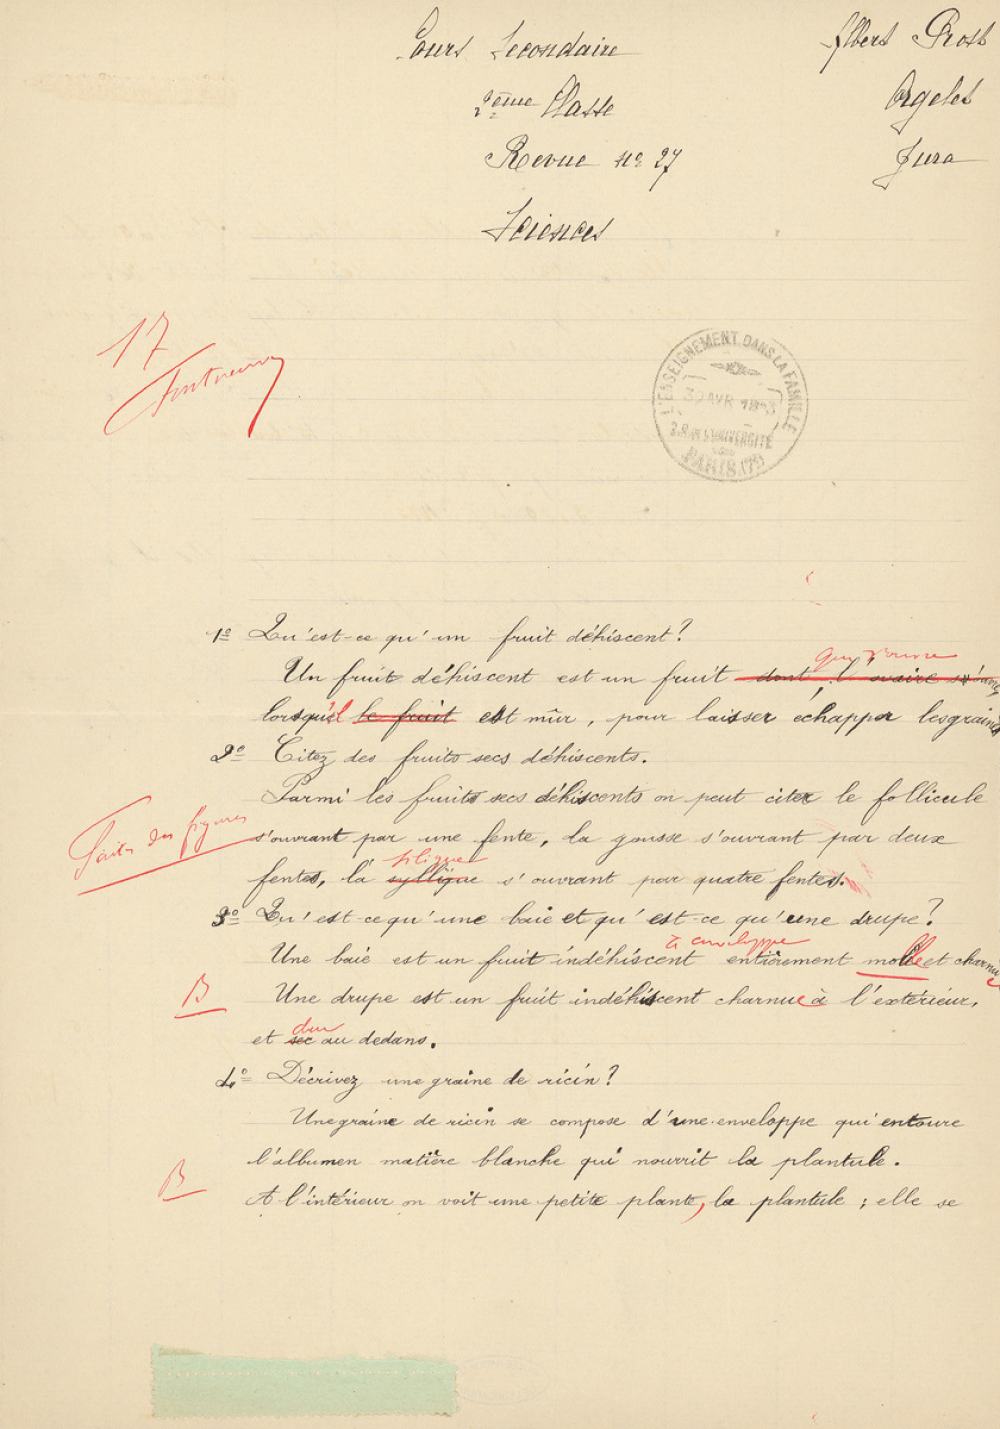 Cours Secondaire
2ème Classe
Revue no 27
Sciences
Albert Prost
Orgelet
Jura
17
L'ENSEIGNEMENT DANS LA FAMILLE
30 AVR
PARIS (7e)
1o Qu'est-ce qu'un fruit déhiscent?
qui s'ouvre
Un fruit déhiscent est un fruit dont l'ovaire s'ouvre,
lorsqu'il le fruit est mûr, pour laisser echapper les graines
2o Citez des fruits secs déhiscents.
Parmi les fruits secs déhiscents on peut citer le follicule
Faites des figures
s'ouvrant par une fente, la gousse s'ouvrant par deux
silique
fentes, la syllique s'ouvrant par quatre fentes.
3o Qu'est-ce qu'une baie et qu'est-ce qu'une drupe?
à enveloppe
Une baie est un fruit indéhiscent entièrement molle et charnue
B
Une drupe est un fruit indéhiscent charnue à l'extérieur,
dur
et sec au dedans.
4o Décrivez une graine de ricin?
Une graine de ricin se compose d'une enveloppe qui entoure
l'albumen matière blanche qui nourrit la plantule.
B
A l'intérieur on voit une petite plante, la plantule; elle se